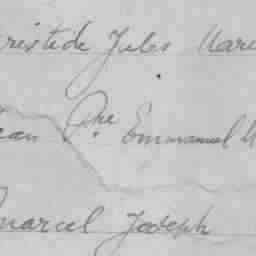 ristide Jules Mare
ean Pre Emmanuel M
marcel Joseph